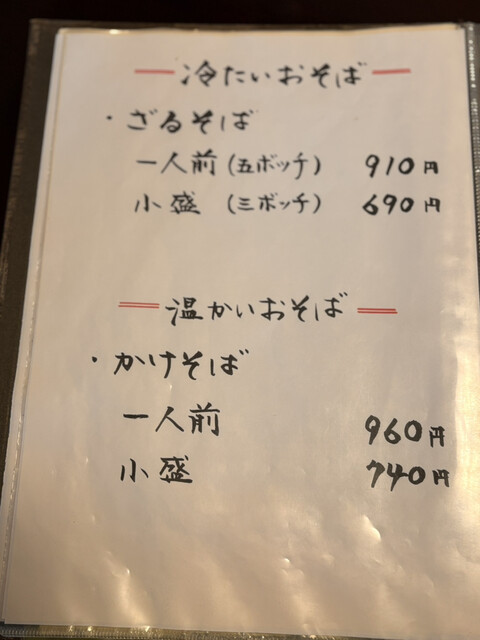 冷たいおそば
・ざるそば
一人前（五ボッチ） 910円
小盛（三ボッチ） 690円
温かいおそば
・かけそば
一人前 960円
小盛 740円